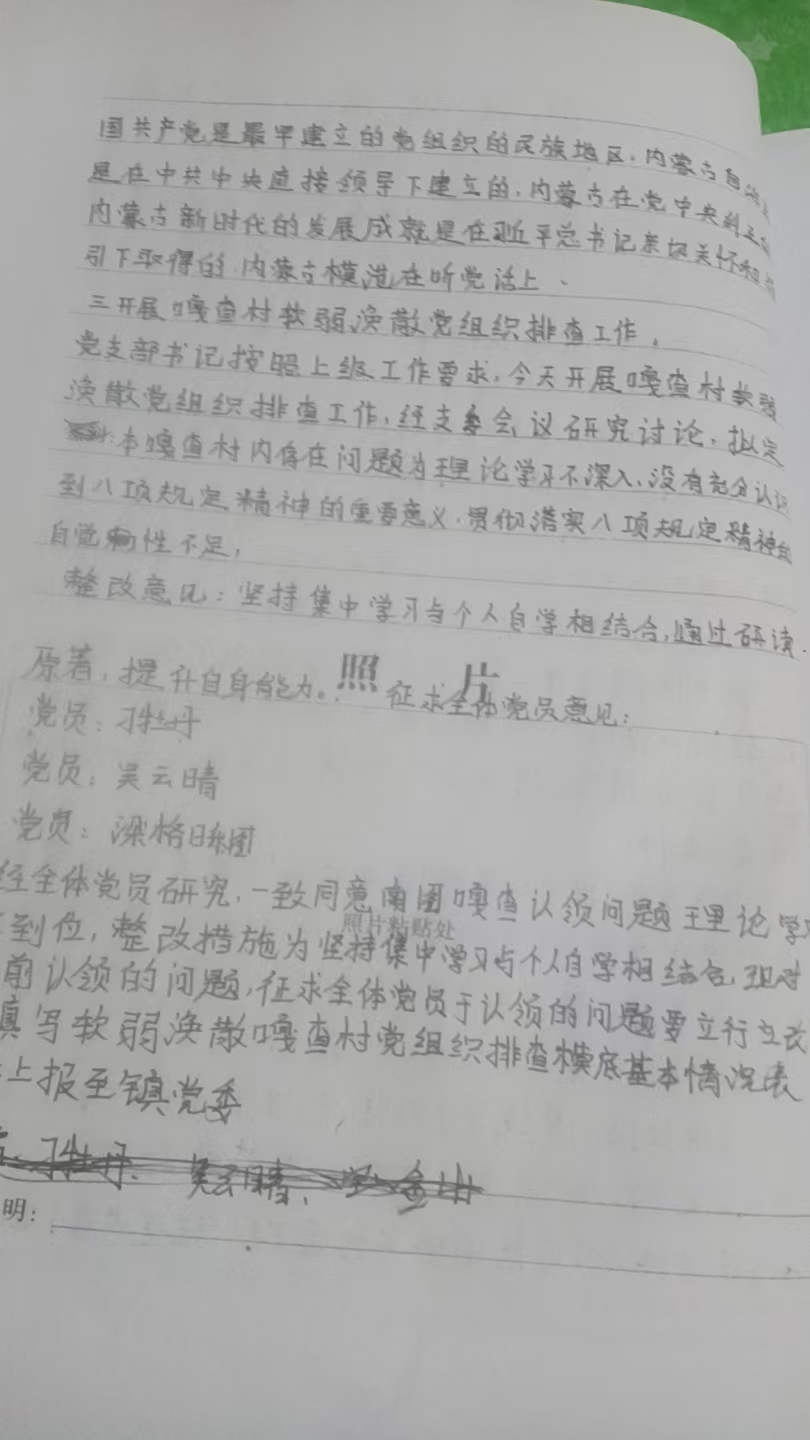 国共产党是最早建立的党组织的民族地区,内蒙古自治
是在中共中央直接领导下建立的,内蒙古在党中央
内蒙古新时代的发展成就是在习近平总书记亲切关怀和
引下取得的,内蒙古模范在听党话上、
三开展嘎查村软弱涣散党组织排查工作。
党支部书记按照上级工作要求,今天开展嘎查村软弱
涣散党组织排查工作,经支委会议研究讨论,拟定
本嘎查村内存在问题为理论学习不深入,没有充分认识
到八项规定精神的重要意义,贯彻落实八项规定精神
自觉性不足,
整改意见:坚持集中学习与个人自学相结合,通过研读
原著,提升自身能力。征求全体党员意见:
照 片
党员:牡丹
党员:吴云晴
党员:梁格日图
经全体党员研究,一致同意 嘎查认领问题理论学
到位,整改措施为坚持集中学习与个人自学相结合,现对
照片粘贴处
前认领的问题,征求全体党员于认领的问题要立行立改
填写软弱涣散嘎查村党组织排查模底基本情况表
上报至镇党委
牡丹. 吴云晴、
明: